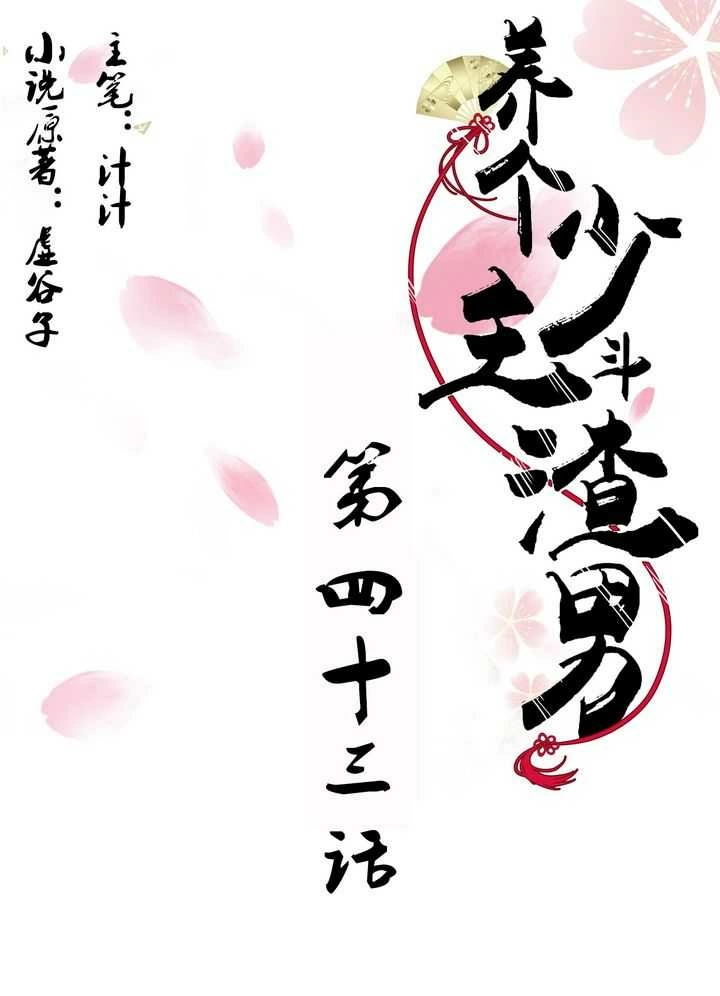 养个少主斗渣男
第四十三话
主笔：汁汁
小说原著：虚谷子